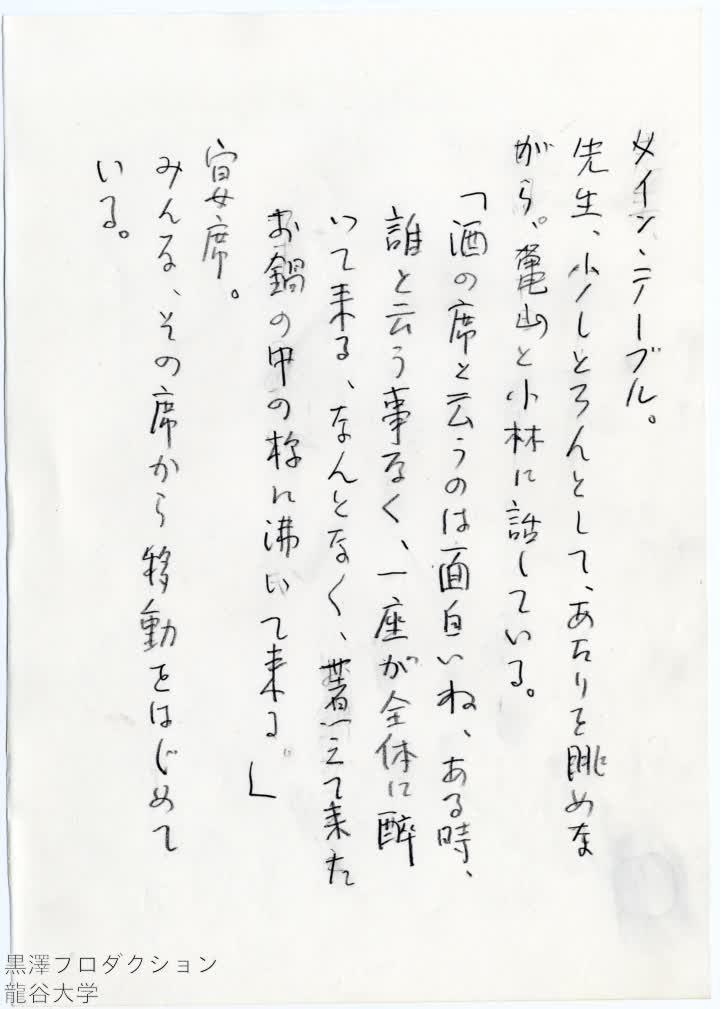 メイン、テーブル。
先生、少しとろんとして、あたりを眺めな
がら。亀山と小林に話している。
「酒の席と云うのは面白いね、ある時、
誰と云う事なく、一座が全体に酔
いて来る、なんとなく、煮えて来た
お鍋の中の様に沸いて来る。」
宴席。
みんな、その席から移動をはじめて
いる。
黒澤プロダクション
龍谷大学